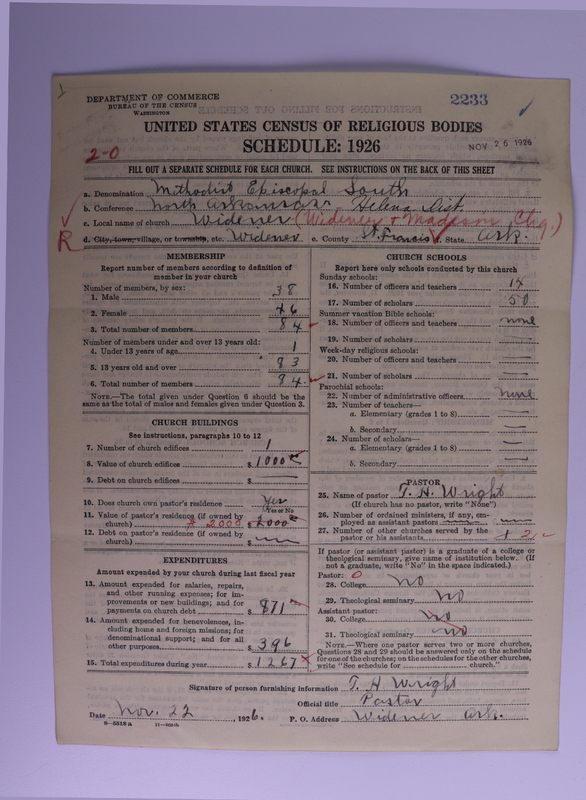 DEPARTMENT OF COMMERCE
BUREAU OF THE CENSUS
WASHINGTON
2233
UNITED STATES CENSUS OF RELIGIOUS BODIES
SCHEDULE: 1926
NOV 26 1926
2-0
FILL OUT A SEPARATE SCHEDULE FOR EACH CHURCH. SEE INSTRUCTIONS ON THE BACK OF THIS SHEET
a. Denomination Methodist Episcopal South
b. Conference North Arkansas Helena Dist.
c. Local name of church Widener (Widener + Madison Chg.)
R
d. City, town, village, or township, etc. Widener e. County St. Francis f. State Ark.
MEMBERSHIP
Report number of members according to definition of member in your church
Number of members, by sex:
1. Male 38
2. Female 46
3. Total number of members 84
Number of members under and over 13 years old:
4. Under 13 years of age 1
5. 13 years old and over 83
6. Total number of members 84
NOTE.—The total given under Question 6 should be the
same as the total of males and females given under Question 3.
CHURCH BUILDINGS
See instructions, paragraphs 10 to 12
7. Number of church edifices 1
8. Value of church edifices $ 1000
9. Debt on church edifices $ —
10. Does church own pastor's residence Yes
(Yes or No)
11. Value of pastor's residence (if owned by
church) $ 2000 $ 2000
12. Debt on pastor's residence (if owned by
church) $ —
EXPENDITURES
Amount expended by your church during last fiscal year
13. Amount expended for salaries, repairs,
and other running expenses; for im-
provements or new buildings; and for
payments on church debt $ 871
14. Amount expended for benevolences, in-
cluding home and foreign missions; for
denominational support; and for all
other purposes $ 396
15. Total expenditures during year $ 1267
CHURCH SCHOOLS
Report here only schools conducted by this church
Sunday schools:
16. Number of officers and teachers 14
17. Number of scholars 50
Summer vacation Bible schools:
18. Number of officers and teachers none
19. Number of scholars —
Week-day religious schools:
20. Number of officers and teachers —
21. Number of scholars —
Parochial schools:
22. Number of administrative officers None
23. Number of teachers—
a. Elementary (grades 1 to 8) —
b. Secondary —
24. Number of scholars—
a. Elementary (grades 1 to 8) —
b. Secondary —
PASTOR
25. Name of pastor T. H. Wright
(If church has no pastor, write "None")
26. Number of ordained ministers, if any, em-
ployed as assistant pastors —
27. Number of other churches served by the
pastor or his assistants
If pastor (or assistant pastor) is a graduate of a college or
theological seminary, give name of institution below. (If
not a graduate, write "No" in the space indicated.)
Pastor: 0
28. College No
29. Theological seminary No
Assistant pastor:
30. College No
31. Theological seminary No
NOTE.—Where one pastor serves two or more churches,
Questions 28 and 29 should be answered only on the schedule
for one of the churches; on the schedules for the other churches,
write "See schedule for church."
Signature of person furnishing information T. H. Wright
Official title Pastor
Date Nov. 22, 1926. P. O. Address Widener Ark.